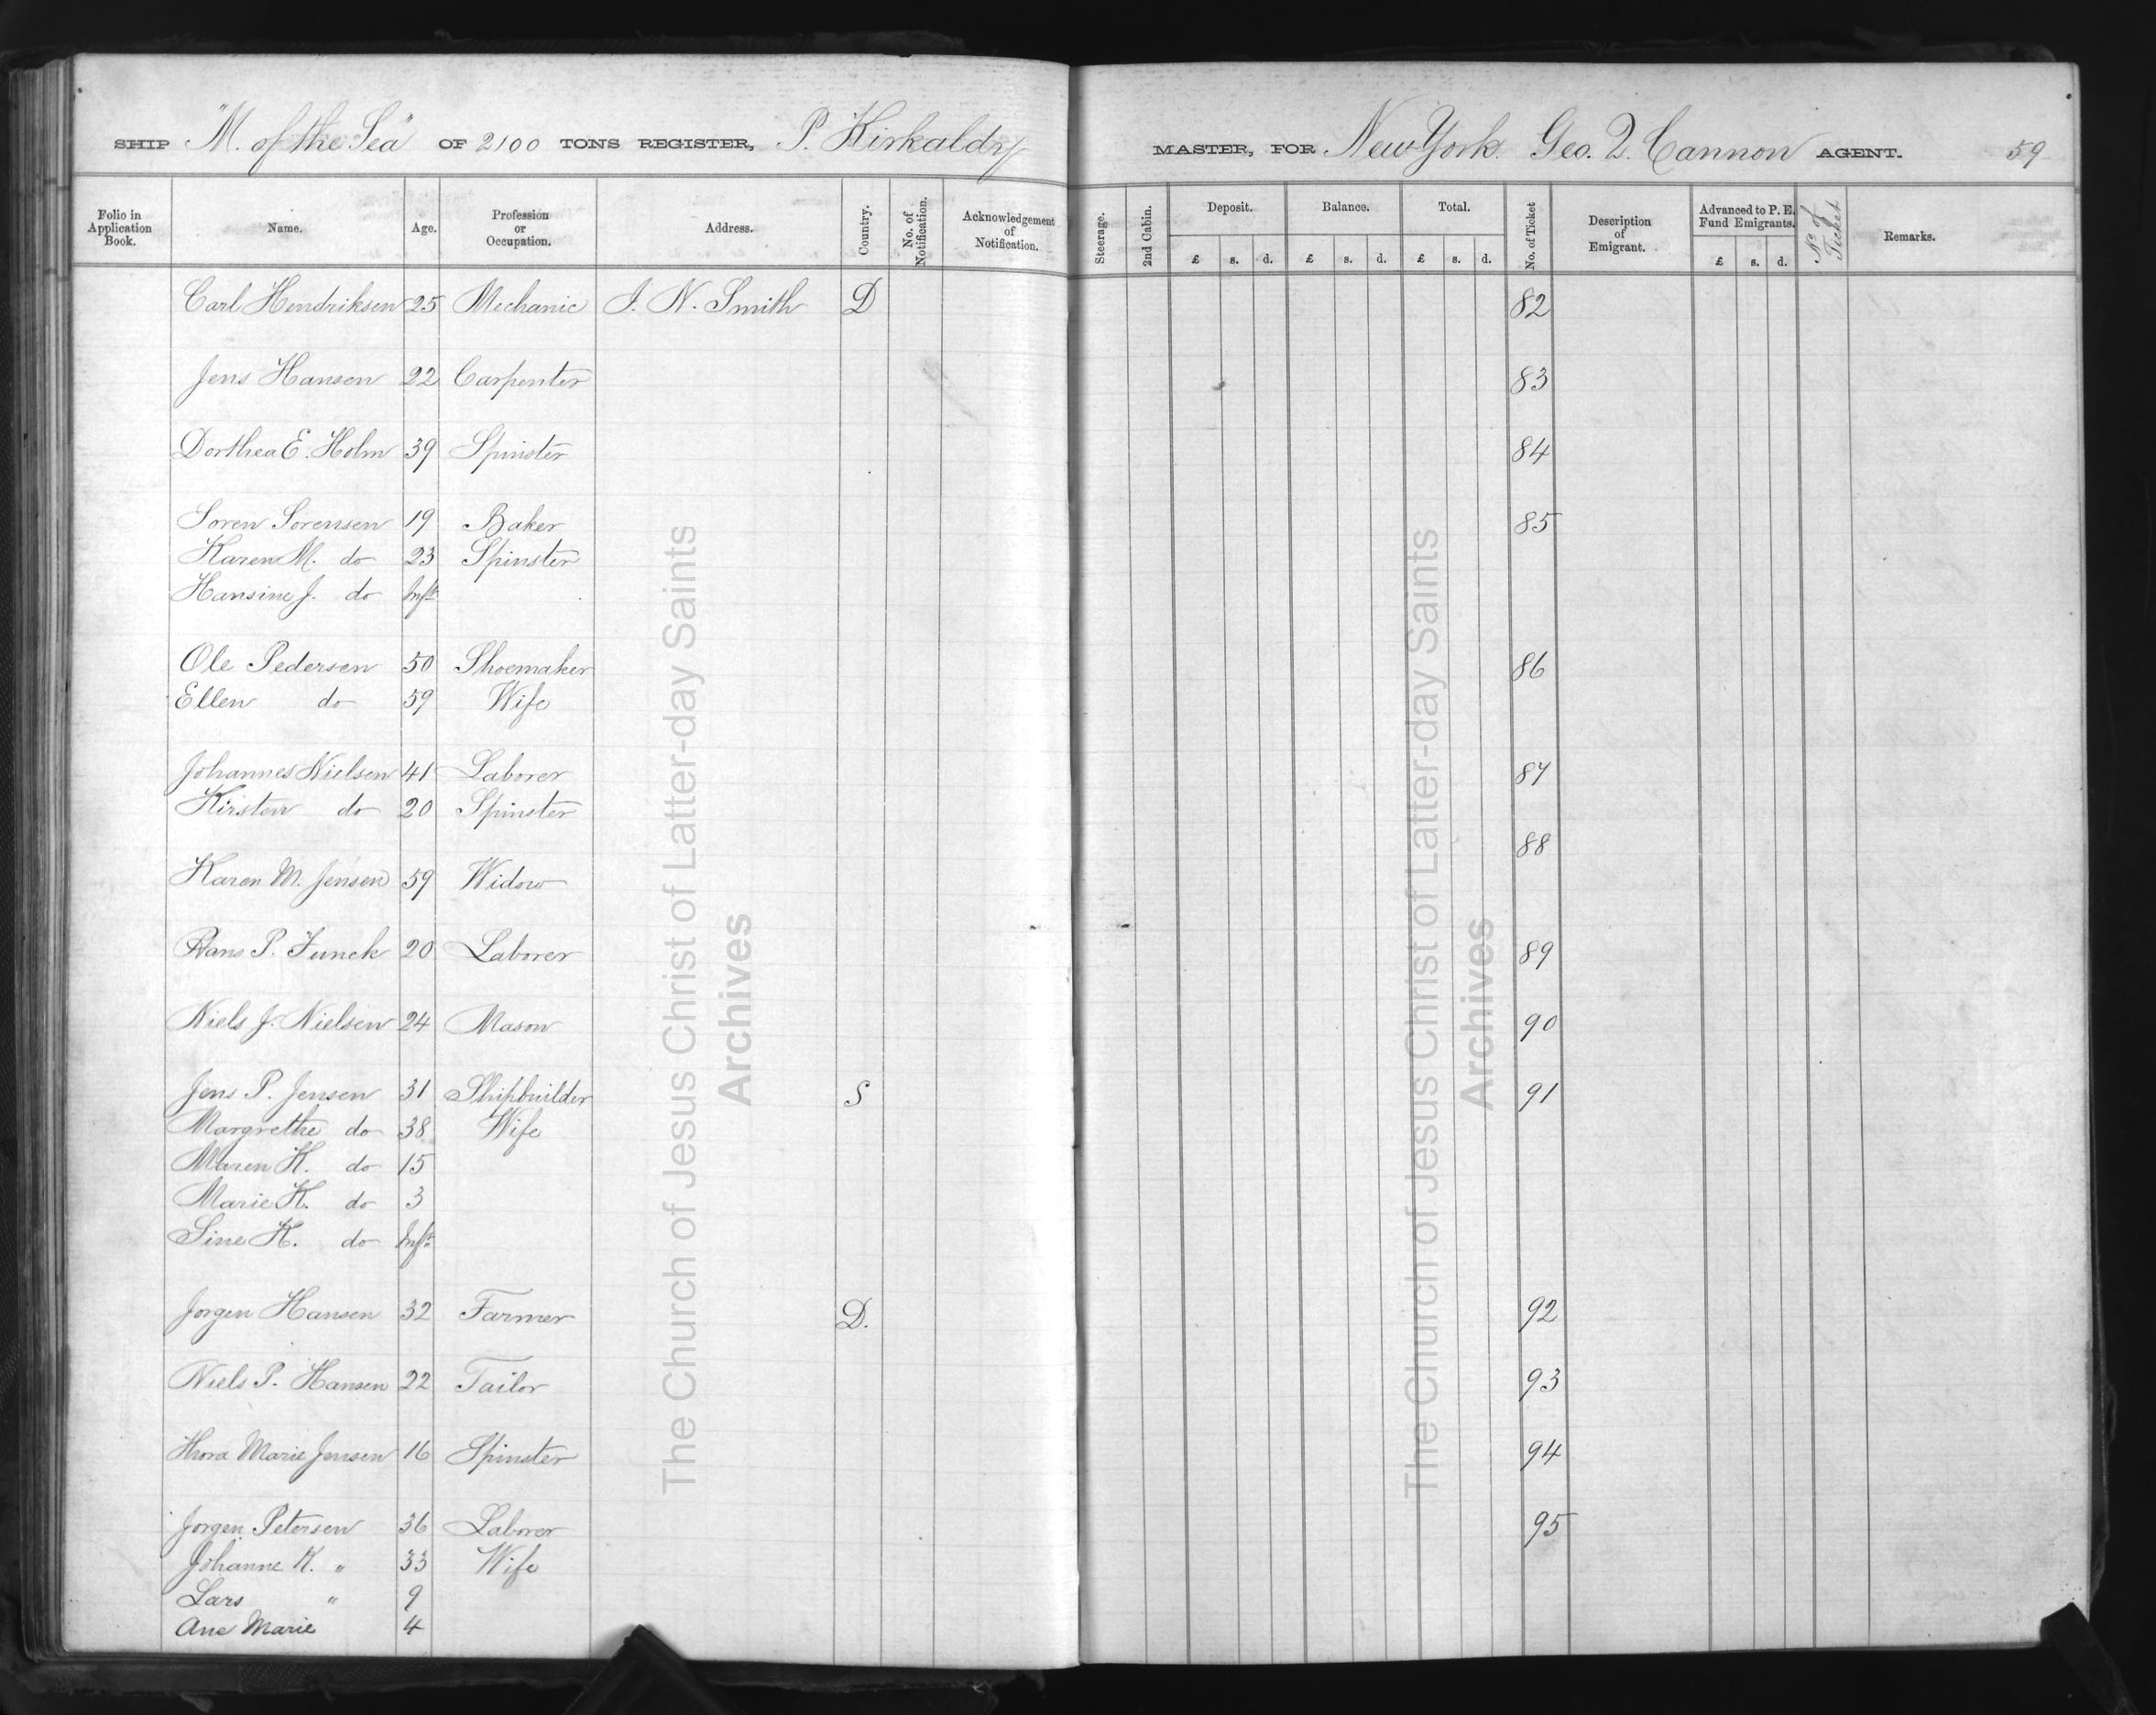 SHIP "M. of the Sea" OF 2100 TONS REGISTER, P. Kirkaldry MASTER, FOR New York. Geo. Q. Cannon AGENT. 59
Folio in Application Book. Name. Age. Profession or Occupation. Address. Country. No. of Notification. Acknowledgement of Notification. Steerage. 2nd Cabin. Deposit. £ s. d. Balance. £ s. d. Total. £ s. d. No. of Ticket Description of Emigrant. Advanced to P. E. Fund Emigrants. £ s. d. No of Ticket Remarks.
Carl Hendriksen 25 Mechanic J. N. Smith D 82
Jens Hansen 22 Carpenter 83
Dorthea E. Holm 39 Spinster 84
Soren Sorensen 19 Baker 85
Karen M. do 23 Spinster
Hansine J. do Inft
Ole Pedersen 50 Shoemaker 86
Ellen do 59 Wife
Johannes Nielsen 41 Laborer 87
Kirsten do 20 Spinster
88
Karen M. Jensen 59 Widow
Hans P. Funck 20 Laborer 89
Niels J. Nielsen 24 Mason 90
Jens P. Jensen 31 Shipbuilder S 91
Margrethe do 38 Wife
Maren K. do 15
Marie K. do 3
Sine K. do Inft
Jorgen Hansen 32 Farmer D. 92
Niels P. Hansen 22 Tailor 93
Marie Jensen 16 Spinster 94
Jorgen Petersen 36 Laborer 95
Johanne K. " 33 Wife
Lars " 9
Ane Marie 4
The Church of Jesus Christ of Latter-day Saints
Archives
The Church of Jesus Christ of Latter-day Saints
Archives